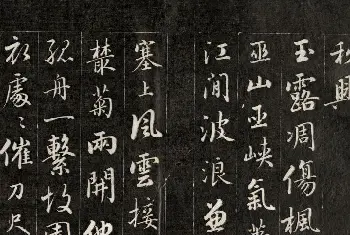 秋興
玉露凋傷楓
巫山巫峽氣蕭
江間波浪兼
塞上風雲接
叢菊兩開他
孤舟一繫故園
衣處〻催刀尺